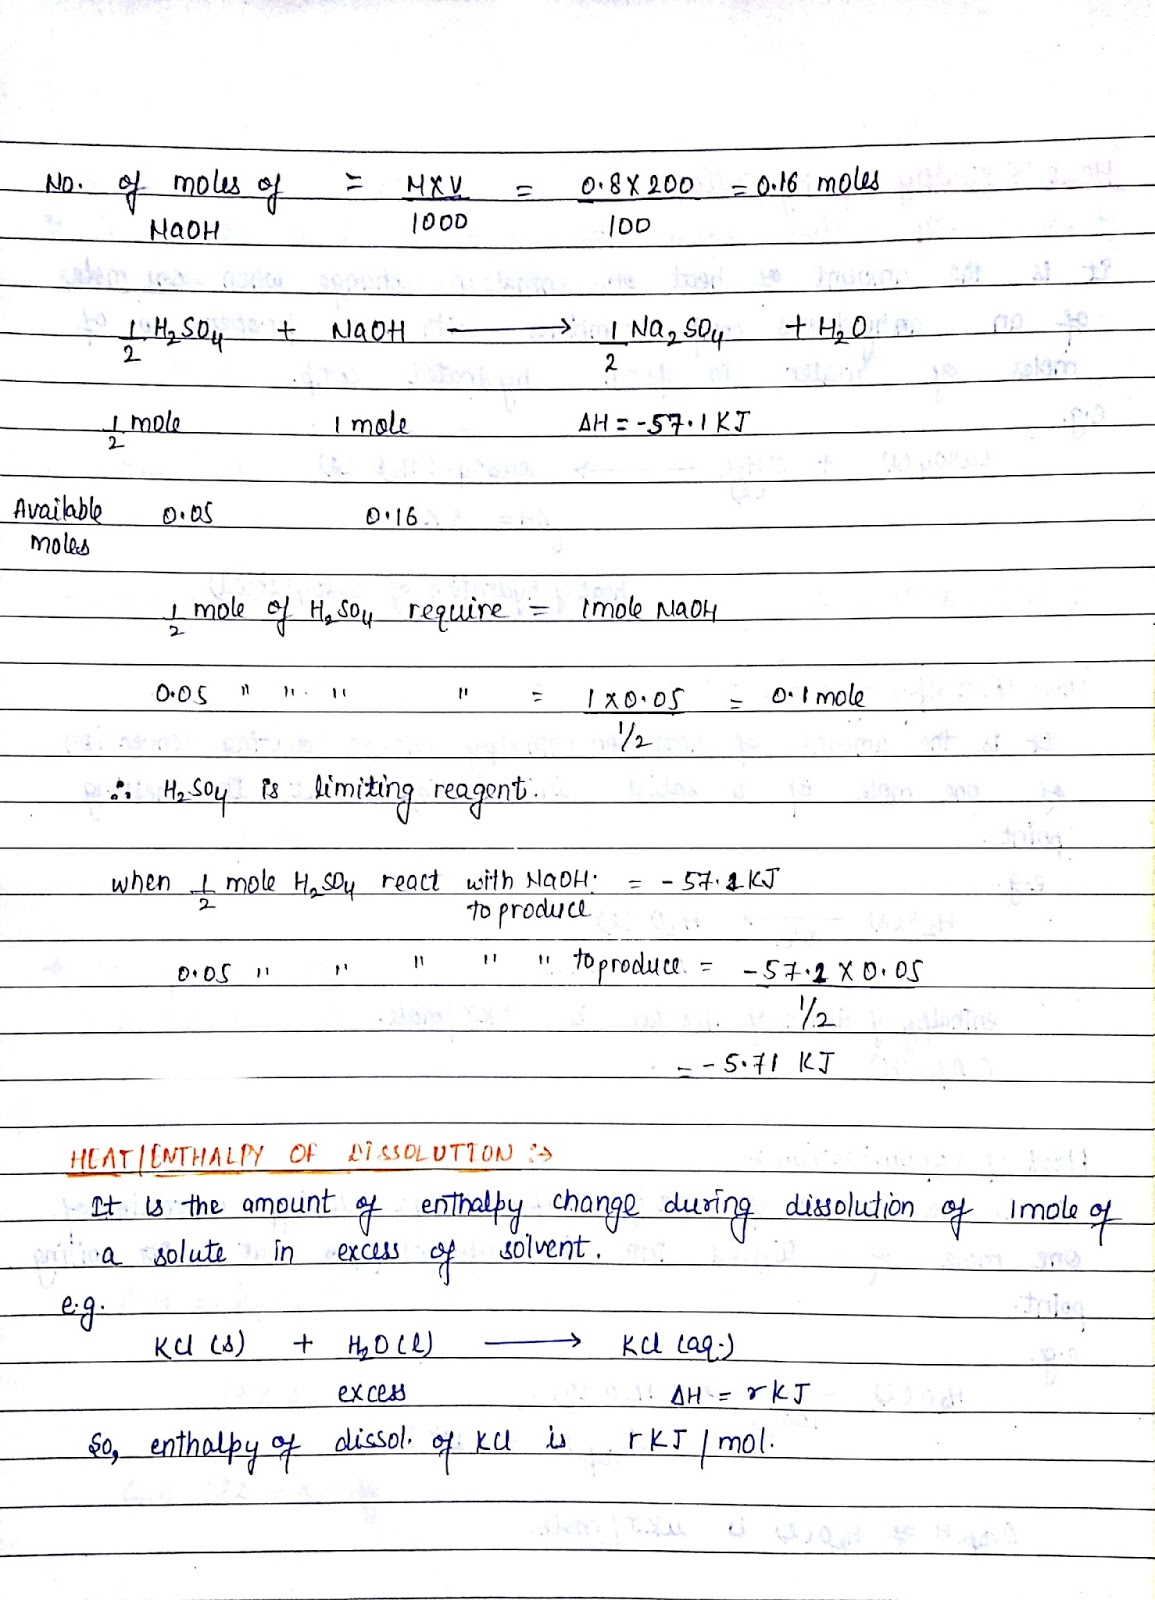 No. of moles of = M×V = 0.8×200 = 0.16 moles
NaOH 1000 100
1/2 H₂SO₄ + NaOH ⟶ 1/2 Na₂SO₄ + H₂O
1/2 mole 1 mole ΔH = -57.1 KJ
Available 0.05 0.16
moles
1/2 mole of H₂SO₄ require = 1mole NaOH
0.05 " " " " = 1×0.05 = 0.1 mole
1/2
∴ H₂SO₄ is limiting reagent.
when 1/2 mole H₂SO₄ react with NaOH = -57.1 KJ
to produce
0.05 " " " " " to produce = -57.1 × 0.05
1/2
= -5.71 KJ
HEAT/ENTHALPY OF DISSOLUTION :→
It is the amount of enthalpy change during dissolution of 1 mole of
a solute in excess of solvent.
e.g.
KCl (s) + H₂O (l) ⟶ KCl (aq.)
excess ΔH = r KJ
So, enthalpy of dissol. of KCl is r KJ / mol.